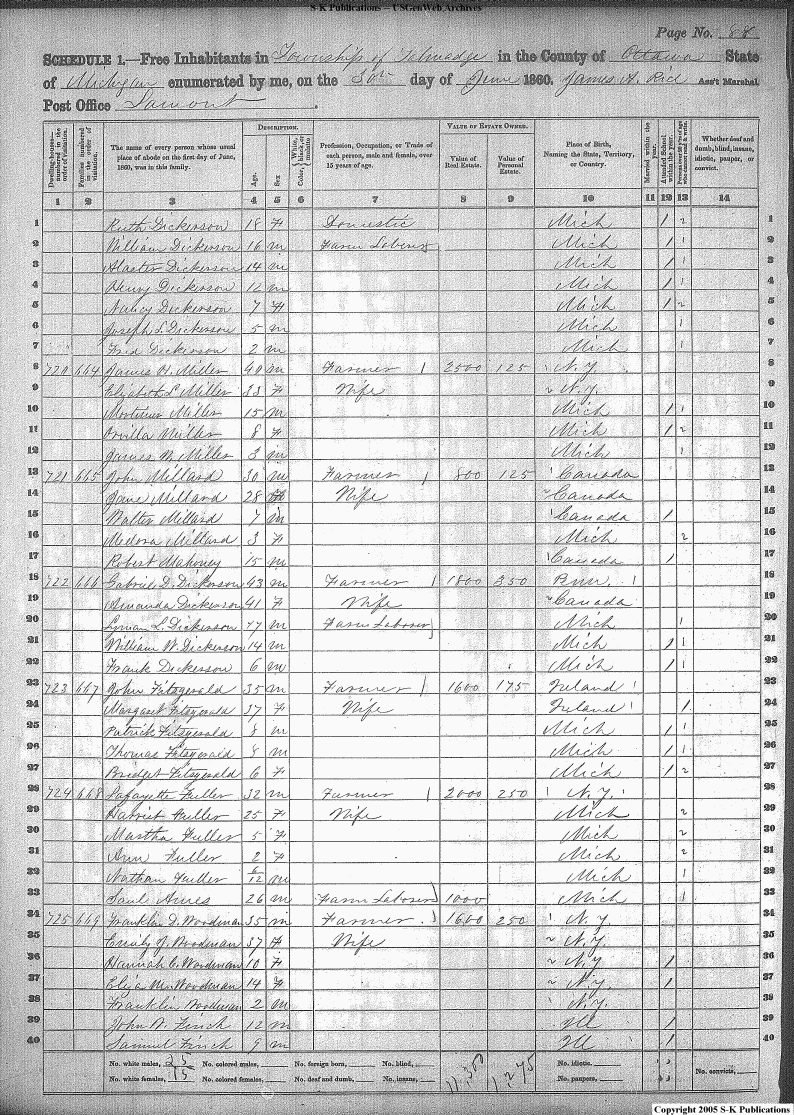 S-K Publications -- USGenWeb Archives
Page No. 88
SCHEDULE 1.—Free Inhabitants in Township of Talmadge in the County of Ottawa State
of Michigan enumerated by me, on the 30th day of June 1860. James A. Rice Ass't Marshal
Post Office Lamont.
DESCRIPTION. VALUE OF ESTATE OWNED.
Dwelling-houses—numbered in the order of visitation. Families numbered in the order of visitation. The name of every person whose usual place of abode on the first day of June, 1860, was in this family. Age. Sex. Color, White, black, or mulatto. Profession, Occupation, or Trade of each person, male and female, over 15 years of age. Value of Real Estate. Value of Personal Estate. Place of Birth, Naming the State, Territory, or Country. Married within the year. Attended School within the year. Whether deaf and dumb, blind, insane, idiotic, pauper, or convict.
1 2 3 4 5 6 7 8 9 10 11 12 13 14
1 Ruth Dickerson 18 F Domestic Mich / 2 1
2 William Dickerson 16 m Farm Laborer Mich / 1 2
3 Dickerson 14 m Mich / 1 3
4 Henry Dickerson 12 m Mich / 1 4
5 Nancy Dickerson 7 F Mich / 2 5
6 Joseph L Dickerson 5 m Mich 1 6
7 Fred Dickerson 2 m Mich 1 7
8 720 664 James H. Miller 40 m Farmer / 2500 125 N.Y. 8
9 Elizabeth L Miller 33 F Wife N.Y. 9
10 Mortimer Miller 15 m Mich / 1 10
11 Orvilla Miller 8 F Mich / 2 11
12 James M. Miller 3 m Mich 1 12
13 721 665 John Millard 30 m Farmer / 800 125 Canada 13
14 Jane Millard 28 Wife Canada 14
15 Walter Millard 7 m Canada / 15
16 Medora Millard 3 F Mich 2 16
17 Robert Mahoney 15 m Canada / 17
18 722 666 Gabriel D. Dickerson 43 m Farmer / 1800 350 1 18
19 Amanda Dickerson 41 F Wife Canada 19
20 Lyman L. Dickerson 17 m Farm Laborer Mich 1 20
21 William W. Dickerson 14 m Mich / 1 21
22 Frank Dickerson 6 m Mich / 1 22
23 723 667 John Fitzgerald 35 m Farmer / 1600 175 Ireland 23
24 Margaret Fitzgerald 37 F Wife Ireland / 24
25 Patrick Fitzgerald 8 m Mich / 1 25
26 Thomas Fitzgerald 8 m Mich / 1 26
27 Bridget Fitzgerald 6 F Mich / 2 27
28 724 668 Lafayette Fuller 32 m Farmer / 2000 250 N.Y. 28
29 Harriet Fuller 25 F Wife Mich 2 29
30 Martha Fuller 5 F Mich 2 30
31 Ann Fuller 2 F Mich 2 31
32 Nathan Fuller 6/12 m Mich 1 32
33 Saul Ames 26 m Farm Laborer 1000 Mich 1 33
34 725 669 Franklin D. Woodman 35 m Farmer 1600 250 N.Y. 34
35 Emily J. Woodman 37 F Wife N.Y. 35
36 Hannah C. Woodman 10 F N.Y / 36
37 Eliza M. Woodman 14 F N.Y / 37
38 Franklin Woodman 2 m N.Y. 38
39 John W. Finch 12 m Ill / 39
40 Samuel Finch 9 m Ill / 40
No. white males, 25 No. colored males, No. foreign born, No. blind, 11,300 1,275 No. idiotic,
No. white females, 15 No. colored females, No. deaf and dumb, No. insane, No. paupers, No. convicts,
Copyright 2005 S-K Publications